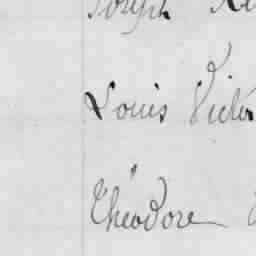 Joseph
Louis Victor
Théodore